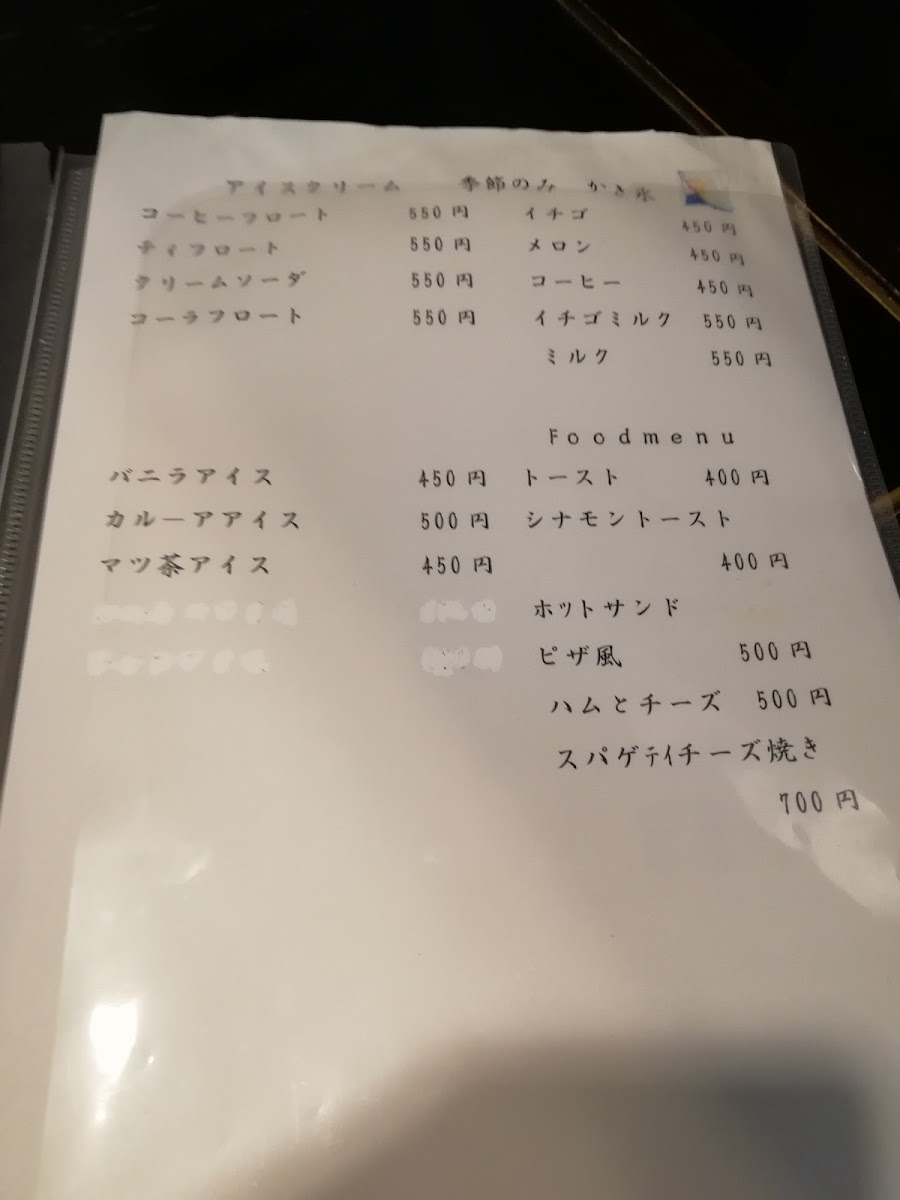 アイスクリーム
コーヒーフロート 550円
ティフロート 550円
クリームソーダ 550円
コーラフロート 550円
バニラアイス 450円
カルーアアイス 500円
マツ茶アイス 450円
季節のみ かき氷
イチゴ 450円
メロン 450円
コーヒー 450円
イチゴミルク 550円
ミルク 550円
Foodmenu
トースト 400円
シナモントースト
400円
ホットサンド
ピザ風 500円
ハムとチーズ 500円
スパゲティチーズ焼き
700円